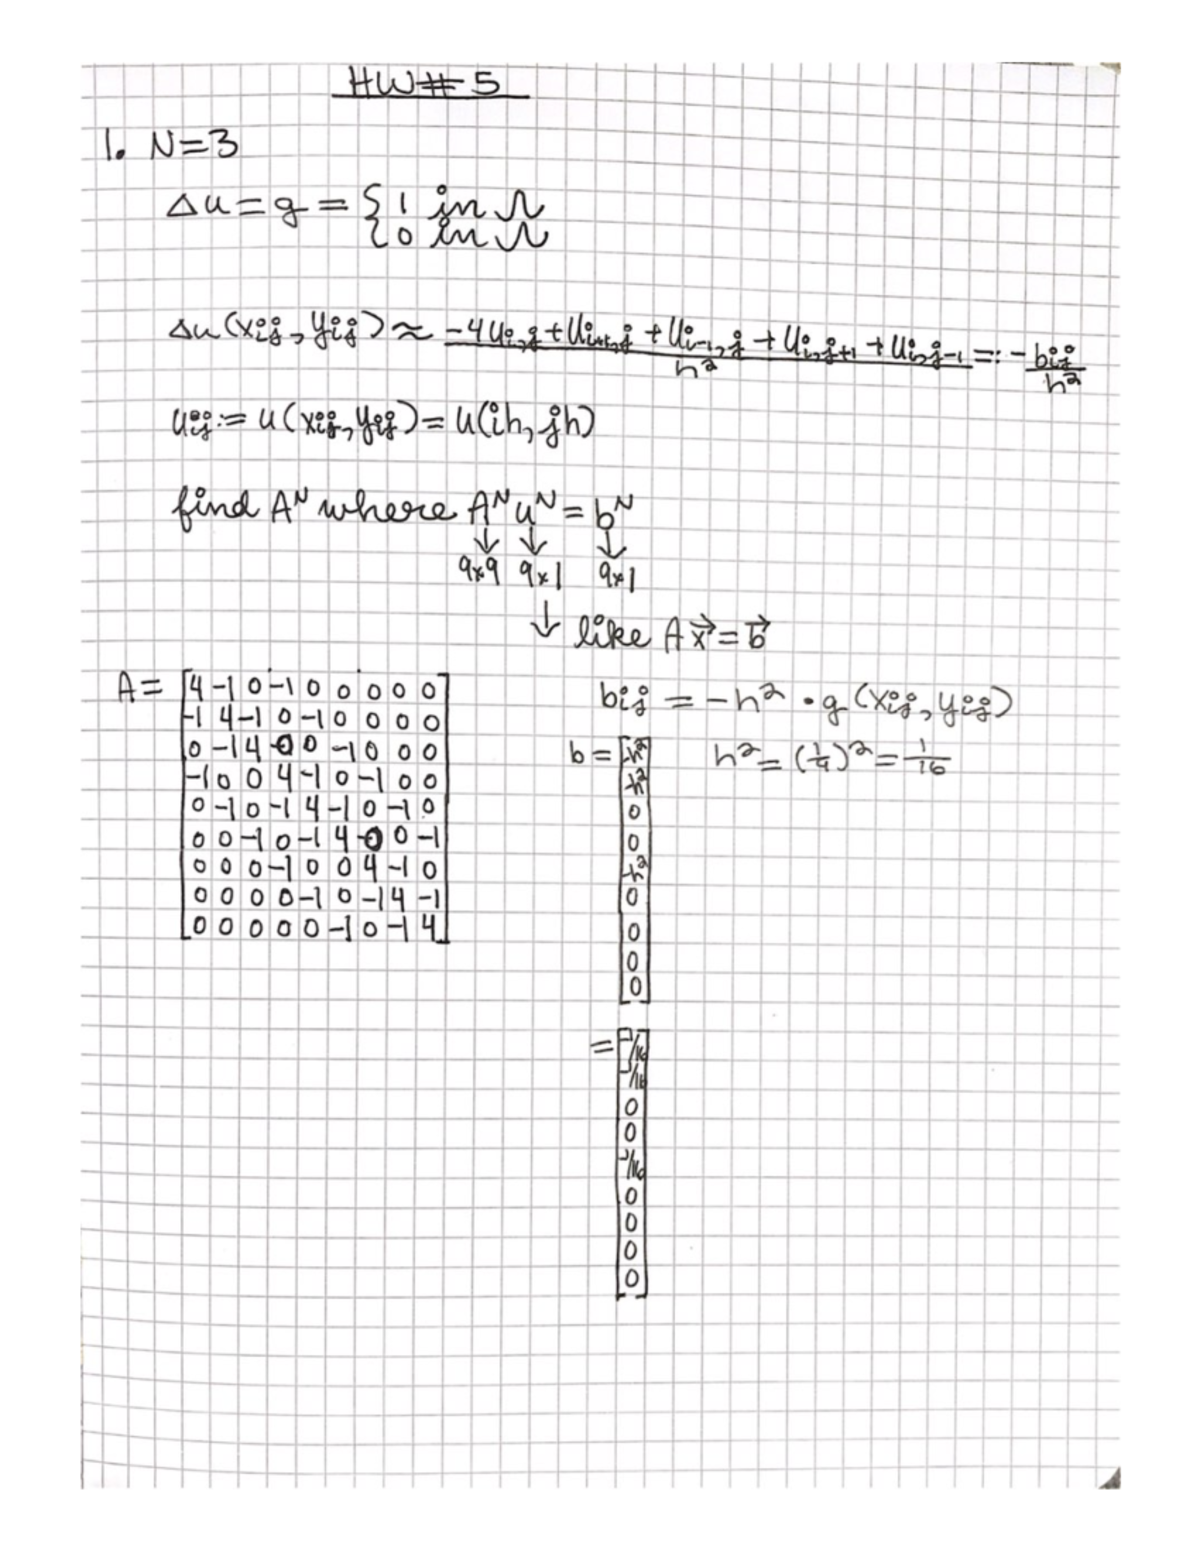 HW#5
1. N=3
Δu=g= {1 in Ω
{0 in Ω
Δu(xij, yij) ≈ -4ui,j+ui+1,j+ui-1,j+ui,j+1+ui,j-1 / h² =: -bij / h²
uij := u(xij, yij) = u(ih, jh)
find Aᴺ where Aᴺuᴺ = bᴺ
↓ ↓ ↓
9x9 9x1 9x1
↓ like Ax⃗ = b⃗
A= [4 -1 0 -1 0 0 0 0 0]
-1 4 -1 0 -1 0 0 0 0
0 -1 4 0 0 -1 0 0 0
-1 0 0 4 -1 0 -1 0 0
0 -1 0 -1 4 -1 0 -1 0
0 0 -1 0 -1 4 0 0 -1
0 0 0 -1 0 0 4 -1 0
0 0 0 0 -1 0 -1 4 -1
0 0 0 0 0 -1 0 -1 4
bij = -h² · g(xij, yij)
b = [-h² h² = (1/4)² = 1/16
-h²
0
0
-h²
0
0
0
0]
= [-1/16
-1/16
0
0
-1/16
0
0
0
0]